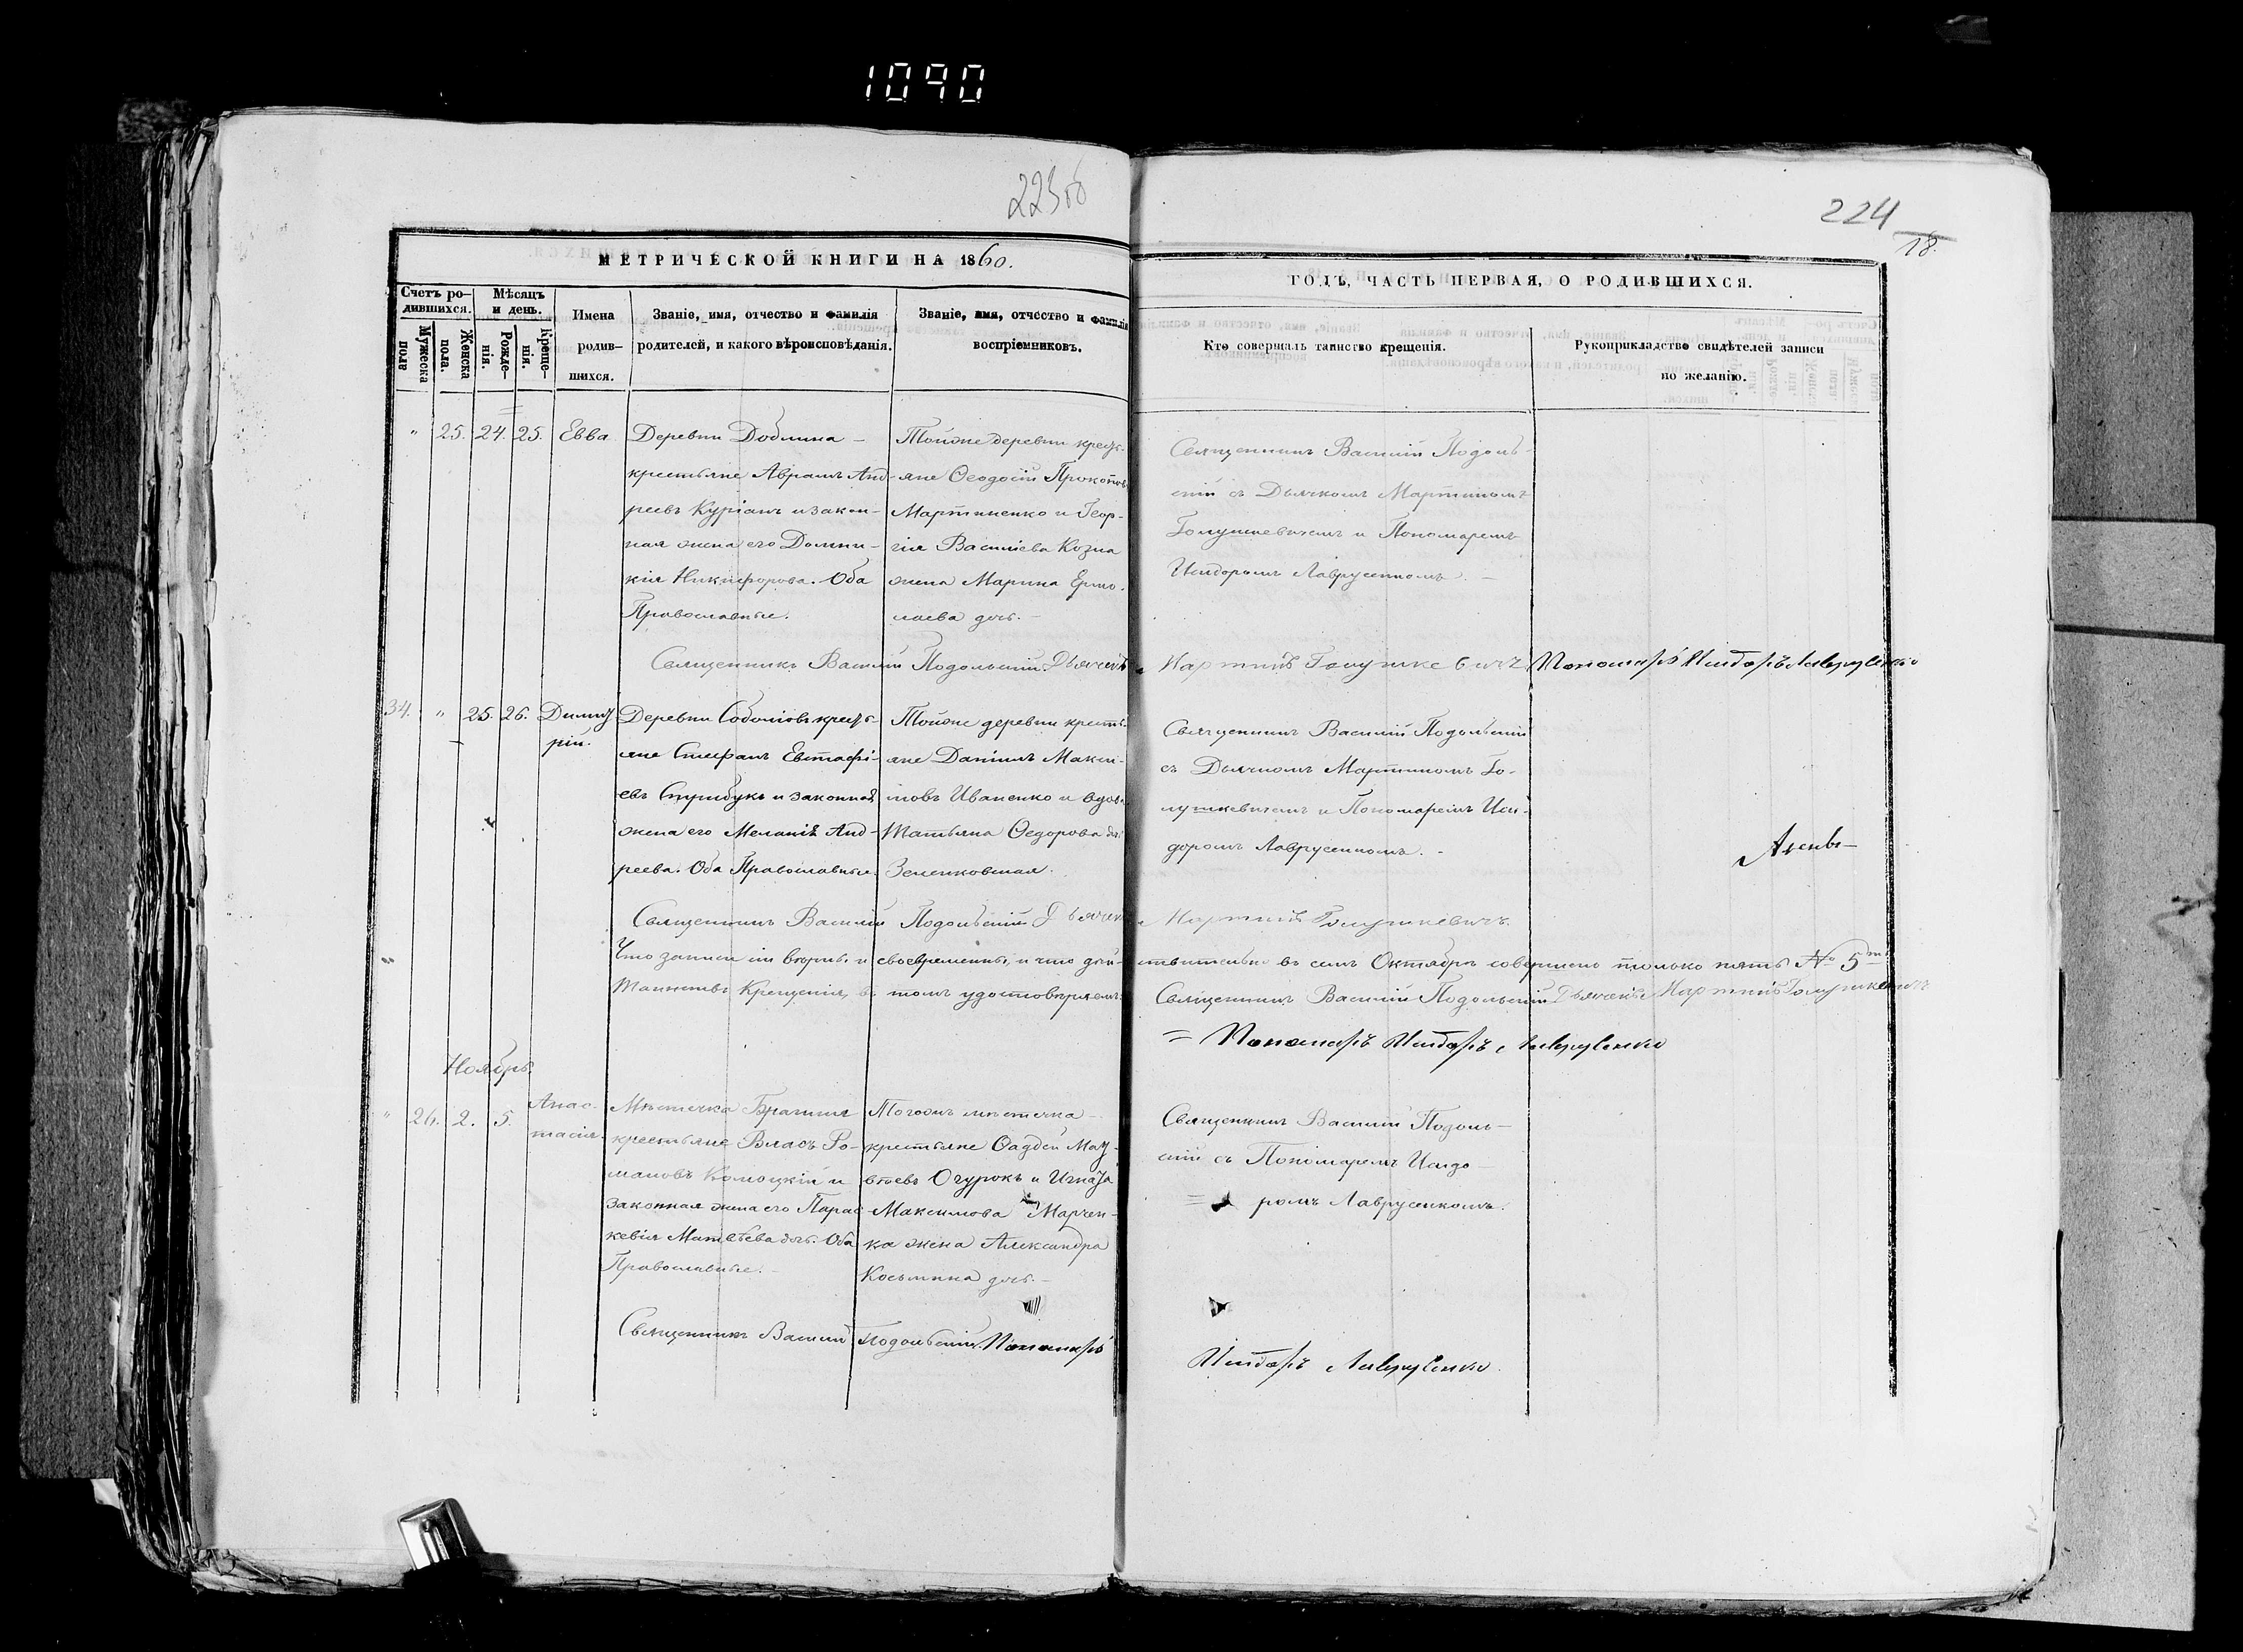 1090
223об
224
18.
МЕТРИЧЕСКОЙ КНИГИ НА 1860.
ГОДЪ, ЧАСТЬ ПЕРВАЯ, О РОДИВШИХСЯ.
Счетъ ро-
дившихся.
Мужеска
пола
Женска
пола.
Мѣсяцъ
и день.
Рожде-
нія.
Креще-
нія.
Имена
родив-
шихся.
Званіе, имя, отчество и фамилія
родителей, и какого вѣроисповѣданія.
Званіе, имя, отчество и фамилія
воспріемниковъ.
Кто совершалъ таинство крещенія.
Рукоприкладство свидѣтелей записи
по желанію.
" 25. 24. 25. Евва
Деревни
крестьяне Авраамъ Анд-
реевъ Куріанъ и закон-
ная жена его Домни-
кія Никифорова. Оба
Православные.
Тойже деревни кресть-
яне Ѳеодосій Прокопов
Мартиненко и Геор-
гія Василіева Козла
жена Марина Ермо-
лаева дочь.
Священникъ Василій Подоль-
скій съ Дьячкомъ Мартиномъ
Голушкевичемъ и Пономаремъ
Исидоромъ Лаврусенкомъ. -
Священникъ Василій Подольскій Дьячекъ Мартинъ Голушкевичъ Пономарь Исидоръ Лаврусенко
34. " 25. 26. Димит
рій.
Деревни кресть-
яне Стефанъ Евстафі-
евъ и законная
жена его Меланія Анд-
реева. Оба Православные.
Тойже деревни кресть-
яне Даніилъ Макси-
мовъ Иваненко и вдова
Татьяна Ѳедорова
Зеленковская.
Священникъ Василій Подольскій
съ Дьячкомъ Мартиномъ Го-
лушкевичемъ и Пономаремъ Иси-
доромъ Лаврусенкомъ. -
Священникъ Василій Подольскій Дьячекъ Мартинъ Голушкевичъ
Что записи сіи вѣрны и своевременны, и что дѣй-ствительно въ семъ Октябрѣ совершено только пять № 5
Таинствъ Крещенія, въ томъ удостовѣряемъ: Священникъ Василій Подольскій Дьячекъ Мартинъ Голушкевичъ
= Пономарь Исидоръ Лаврусенко
Ноябрь.
" 26. 2. 5. Анас-
тасія.
Мѣстечка Брагиня
крестьяне Власъ Ро-
мановъ Комоцкій и
законная жена его Парас-
кевія Матвѣева дочь. Оба
Православные. -
Тогожъ мѣстечка -
крестьяне Ѳаддей Мат-
вѣевъ Огурокъ и Игната
Максимова Марчен-
ка жена Александра
Косьмина дочь. -
Священникъ Василій Подоль-
скій съ Пономаремъ Исидо-
= ромъ Лаврусенкомъ.
Священникъ Василій Подольскій. Пономарь
Исидоръ Лаврусенко